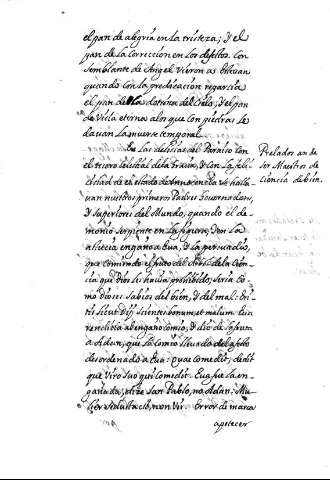 el pan de alegria en la tristeza; y el
pan de la Correccion en los defectos. Con
semblante de Angel vieron a s. Estevan
quando con la predicacion repartia
el pan de la dotrina del Cielo, y el pan
de Vida eterna a los que con piedras le
davan la muerte temporal.
En las delicias del Paraiso con
el tesoro celestial de la Gracia, y con la feli-
cidad de el estado de Innocencia se halla-
van nuestros primeros Padres Governadores,
y Superiores del Mundo, quando el de-
monio Serpiente en la figura, y por la
astucia engaño a Eva, y la persuadio,
que comiendo el fruto del Arbol de la Cien-
cia que Dios les havia prohibido, seria co-
mo Dioses Sabios del bien, y del mal: Eri-
tis sicut Dij scientes bonum, et malum. Eva
rendida al engaño comio, y dio de la fruta
a Adan, que la comio llevado del afecto
desordenado a Eva: quae comedit, dedit
que Viro suo qui comedit. Eva fue la en-
gañada, dize San Pablo, no Adan: Mu-
lier seducta est, non Vir. Error de marca
apetecer
Prelados an de
ser Maestros de
ciencia de bien.